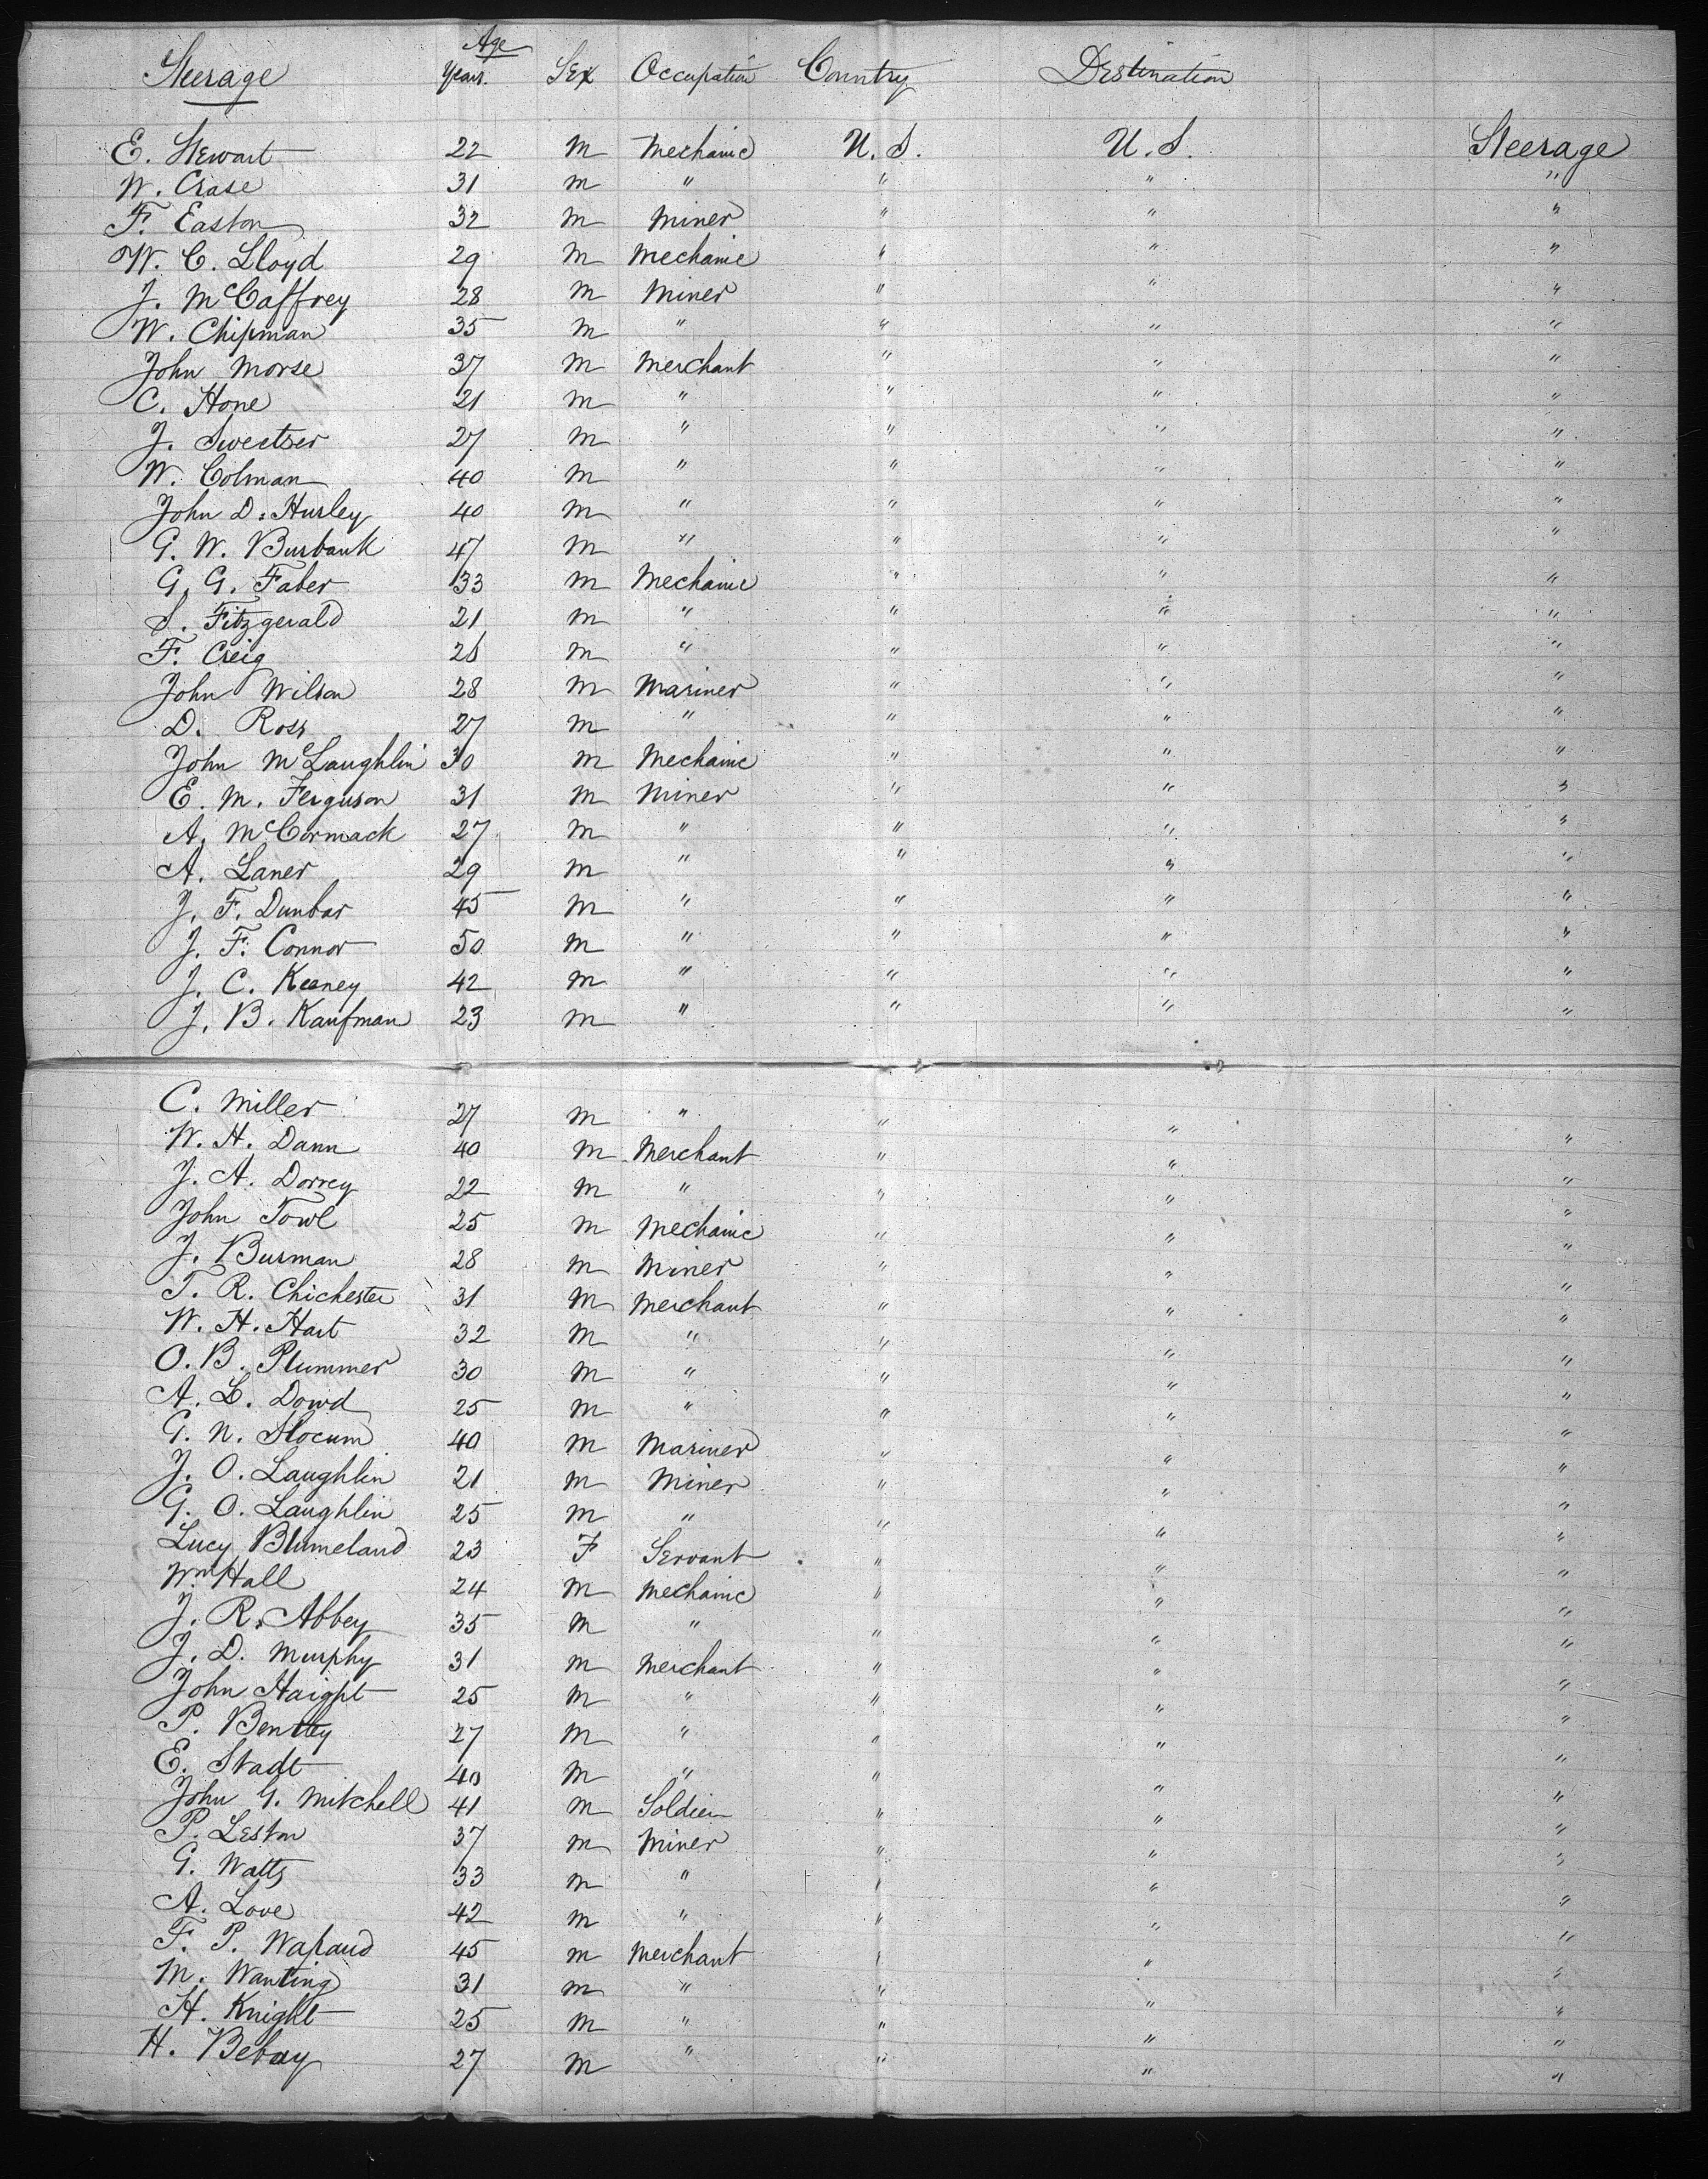 Steerage Age Years. Sex Occupation Country Destination
E. Stewart 22 M Mechanic U.S. U.S. Steerage
W. Crase 31 M " " " "
F. Easton 32 M Miner " " "
W. C. Lloyd 29 M Mechanic " " "
J. McCaffrey 28 M Miner " " "
W. Chipman 35 M " " " "
John Morse 37 M Merchant " " "
C. Hone 21 M " " " "
J. Sweetser 27 M " " " "
W. Colman 40 M " " " "
John D. Hurley 40 M " " " "
G. W. Burbank 47 M " " " "
G. G. Faber 33 M Mechanic " " "
S. Fitzgerald 21 M " " " "
F. Creig M " " " "
John Wilson 28 M Mariner " " "
D. Ross 27 M " " " "
John McLaughlin 30 M Mechanic " " "
E. M. Ferguson 31 M Miner " " "
A. McCormack 27 M " " " "
A. Laner 29 M " " " "
J. F. Dunbar 45 M " " " "
J. F. Connor 50 M " " " "
J. C. Keeney 42 M " " " "
J. B. Kaufman 23 M " " " "
C. Miller 27 M " " " "
W. H. Dann 40 M Merchant " " "
J. A. Dorrey 22 M " " " "
John Towl 25 M Mechanic " " "
J. Burman 28 M Miner " " "
T. R. Chichester 31 M Merchant " " "
W. H. Hart 32 M " " " "
O. B. Plummer 30 M " " " "
A. L. Dowd 25 M " " " "
G. N. Slocum 40 M Mariner " " "
J. O. Laughlin 21 M Miner " " "
G. O. Laughlin 25 M " " " "
Lucy Blumeland 23 F Servant " " "
Wm Hall 24 M Mechanic " " "
J. R. Abbey 35 M " " " "
J. D. Murphy 31 M Merchant " " "
John Haight 25 M " " " "
P. Bentley 27 M " " " "
E. Stadt 40 M " " " "
John G. Mitchell 41 M Soldier " " "
P. Leston 37 M Miner " " "
G. Watts 33 M " " " "
A. Love 42 M " " " "
F. P. 45 M Merchant " " "
M. Wanting 31 M " " " "
H. Knight 25 M " " " "
H. Bebay 27 M " " " "